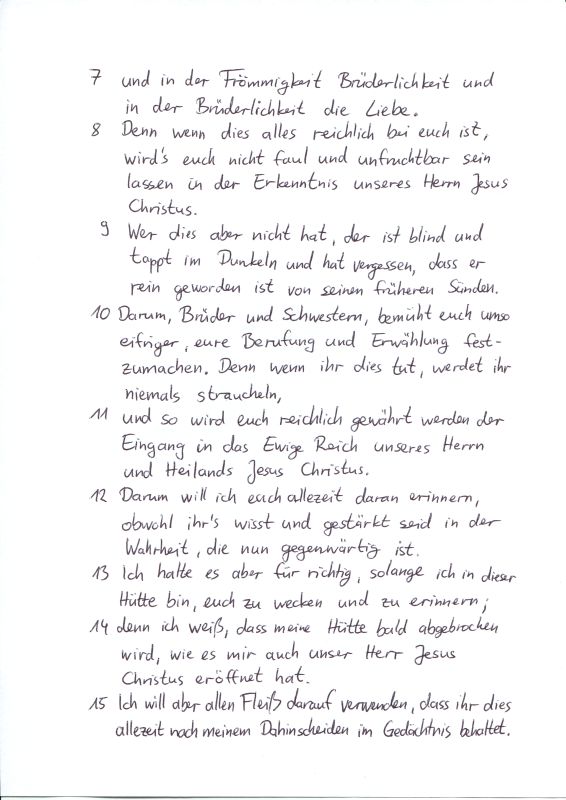 7 und in der Frömmigkeit Brüderlichkeit und
in der Brüderlichkeit die Liebe.
8 Denn wenn dies alles reichlich bei euch ist,
wird's euch nicht faul und unfruchtbar sein
lassen in der Erkenntnis unseres Herrn Jesus
Christus.
9 Wer dies aber nicht hat, der ist blind und
tappt im Dunkeln und hat vergessen, dass er
rein geworden ist von seinen früheren Sünden.
10 Darum, Brüder und Schwestern, bemüht euch umso
eifriger, eure Berufung und Erwählung fest-
zumachen. Denn wenn ihr dies tut, werdet ihr
niemals straucheln,
11 und so wird euch reichlich gewährt werden der
Eingang in das Ewige Reich unseres Herrn
und Heilands Jesus Christus.
12 Darum will ich euch allezeit daran erinnern,
obwohl ihr's wisst und gestärkt seid in der
Wahrheit, die nun gegenwärtig ist.
13 Ich halte es aber für richtig, solange ich in dieser
Hütte bin, euch zu wecken und zu erinnern;
14 denn ich weiß, dass meine Hütte bald abgebrochen
wird, wie es mir auch unser Herr Jesus
Christus eröffnet hat.
15 Ich will aber allen Fleiß darauf verwenden, dass ihr dies
allezeit nach meinem Dahinscheiden im Gedächtnis behaltet.